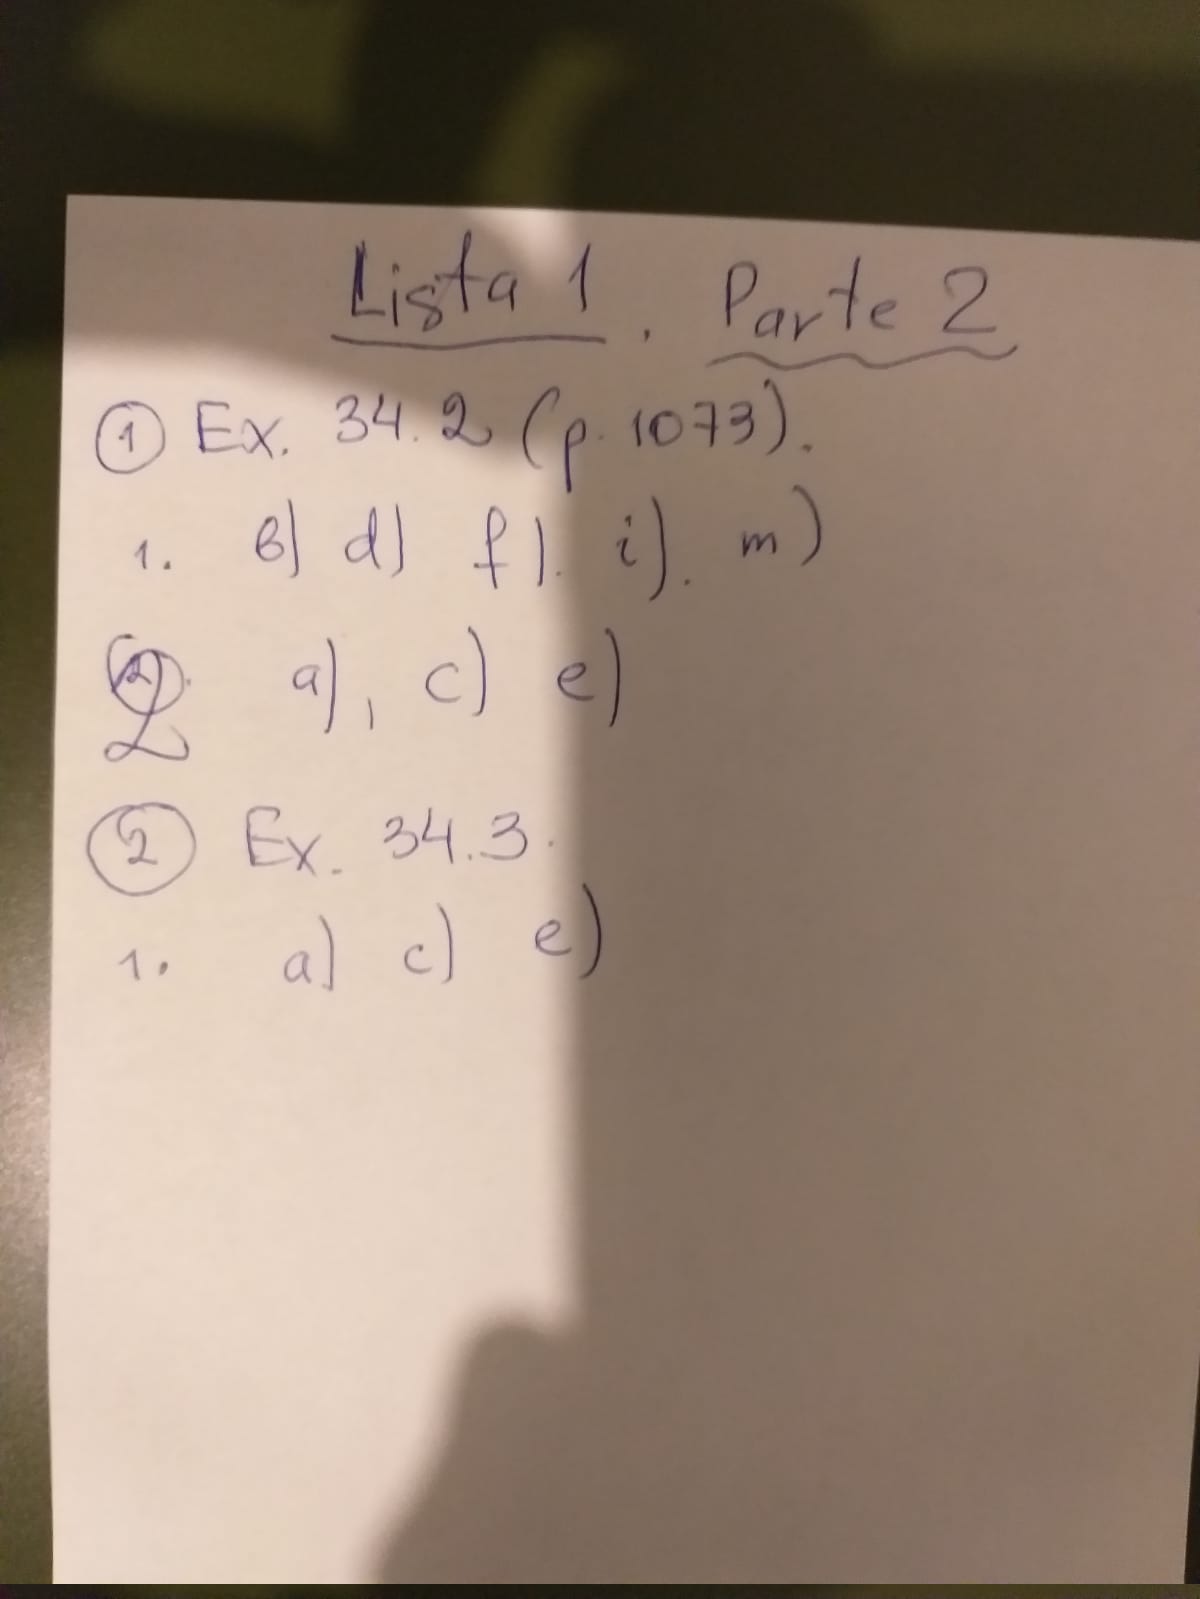 Lista 1. Parte 2
① Ex. 34.2 (p. 1073).
1. b) d) f). i). m)
2 a), c) e)
② Ex. 34.3.
1. a) c) e)